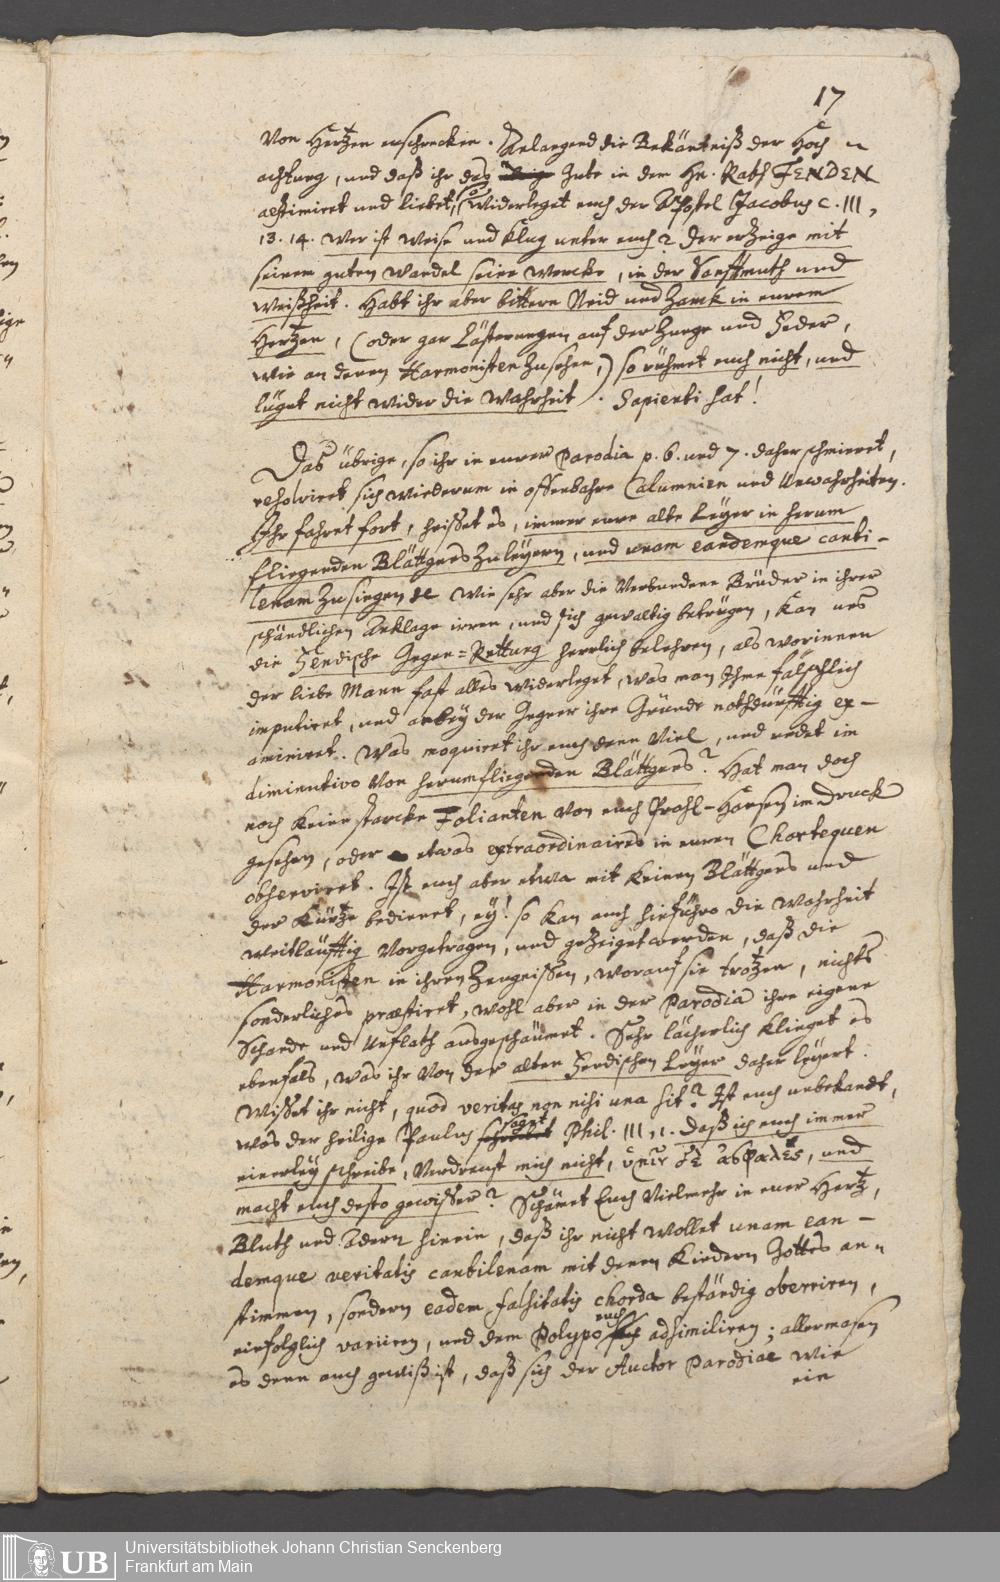 17
Von Hertzen erschrecken. Anlangend die Bekäntniß der Hoch-
achtung, und daß ihr das Gute in dem Hn. Rath FENDEN
aestimiret und liebet, so widerleget euch der Apostel Jacobus c. III,
13. 14. Wer ist weise und klug unter euch? der erzeige mit
seinem guten Wandel seine Wercke, in der Sanfftmuth und
Weißheit. Habt ihr aber bittern Neid und Zanck in eurem
Hertzen, (oder gar Lästerungen auf der Zunge und Feder,
wie an denen Harmonisten zusehen,) so rühmet euch nicht, und
lüget nicht wider die Wahrheit. Sapienti sat!
Das übrige, so ihr in eurer Parodia p. 6. und 7. daher schmieret,
resolviret sich wiederum in offenbahre Calumnien und Unwahrheiten.
Ihr fahret fort, heisset es, immer eure alte Leyer in herum
fliegenden Blättgens zuleyern, und unam eandemque canti-
lenam zu singen &c Wie sehr aber die Verbundene Brüder in ihrer
schändlichen Anklage irren, und sich gewaltig betrügen, kan uns
die Fendische Gegen=Rettung herrlich belehren, als worinnen
der liebe Mann fast alles widerleget, was man Ihme fälschlich
imputiret, und anbey der Gegner ihre Gründe nothdürfftig ex-
aminiret. Was moquiret ihr euch denn viel, und redet im
diminutivo von herumfliegenden Blättgens? Hat man doch
noch keine starcke Folianten von euch Prahl-Hansen im Druck
gesehen, oder etwas extraordinaires in euren Chartequen
observiret. Ist euch aber etwa mit keinen Blättgens und
der Kürtze bedienet, ey! so kan auch hinführo die Wahrheit
weitläufftig vorgetragen, und gezeiget werden, daß die
Harmonisten in ihren Zeugnissen, worauf sie trotzen, nichts
sonderliches praestiret, wohl aber in der Parodia ihre eigene
Schande und Unflath ausgeschäumet. Sehr lächerlich klinget es
ebenfals, was ihr von der alten Fendischen Leyer daher leyert.
Wisset ihr nicht, quod veritas non nisi una sit? Ist euch unbekandt,
was der heilige Paulus saget Phil. III, 1. Daß ich euch immer
einerley schreibe, verdreust mich nicht, ὑμῖν δὲ ἀσφαλὲς, und
macht euch desto gewisser? Schämet Euch vielmehr in euer Hertz,
Bluth und Adern hinein, daß ihr nicht wollet unam ean-
demque veritatis cantilenam mit denen Kindern Gottes an-
stimmen, sondern eadem falsitatis chorda beständig oberriren,
einfolglich variiren, und dem Polypo euch adsimiliren; allermasen
es denn auch gewiß ist, daß sich der Auctor Parodiae wie
ein
UB
Universitätsbibliothek Johann Christian Senckenberg
Frankfurt am Main